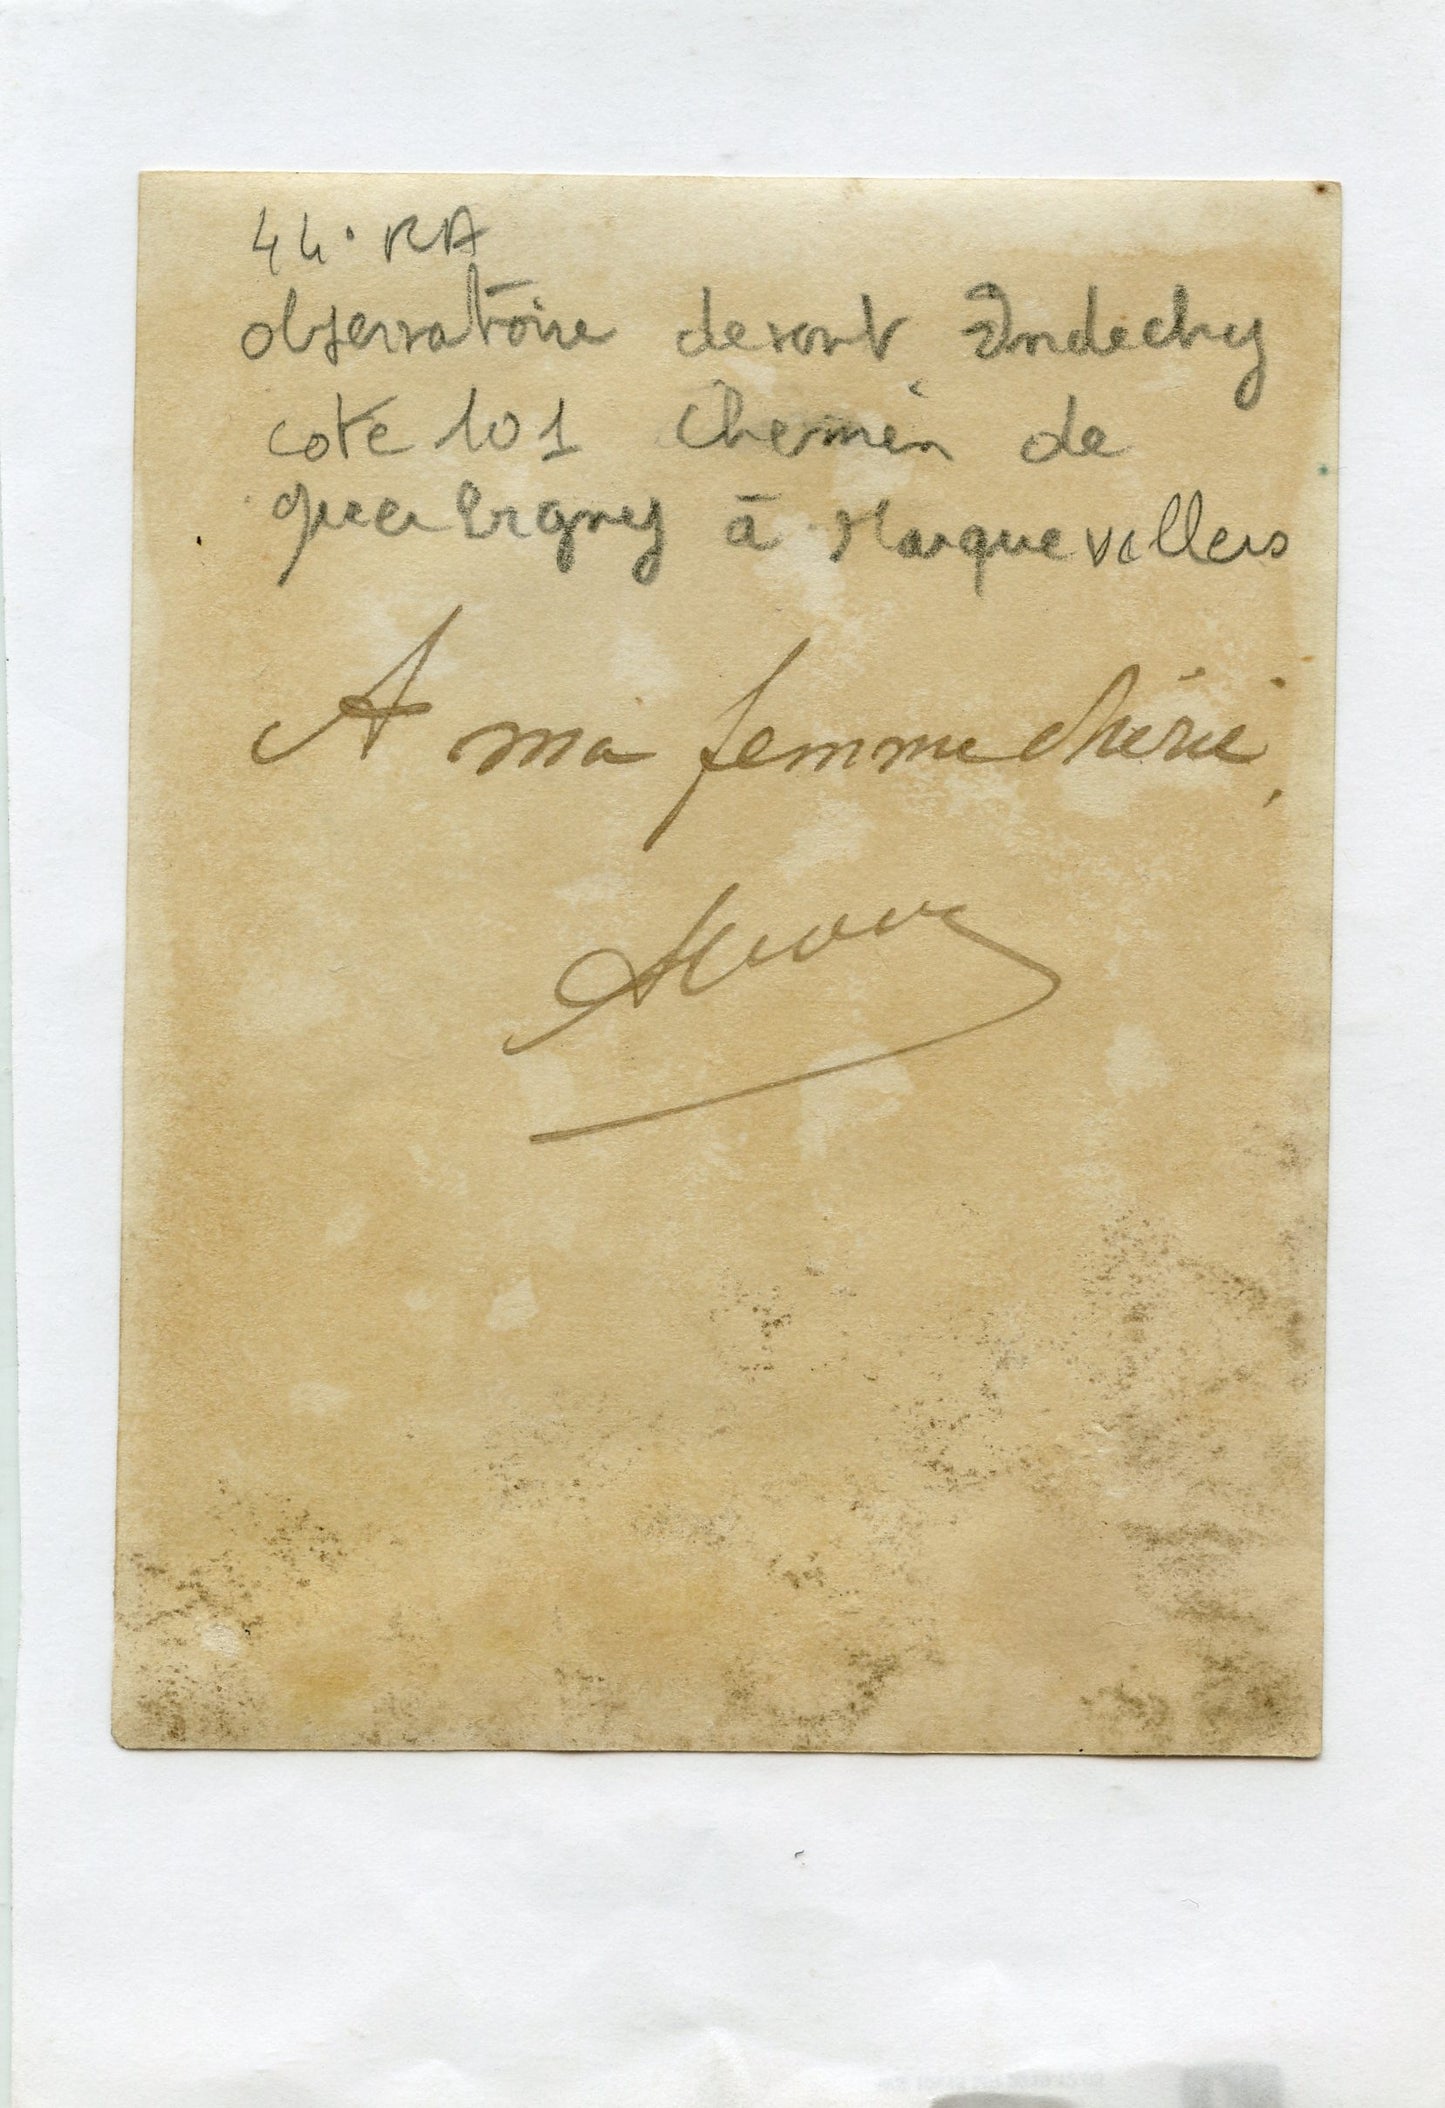 44° RA
observatoire devant Andechy
cote 101 chemin de
Guerbigny à Marquevillers
A ma femme chérie,